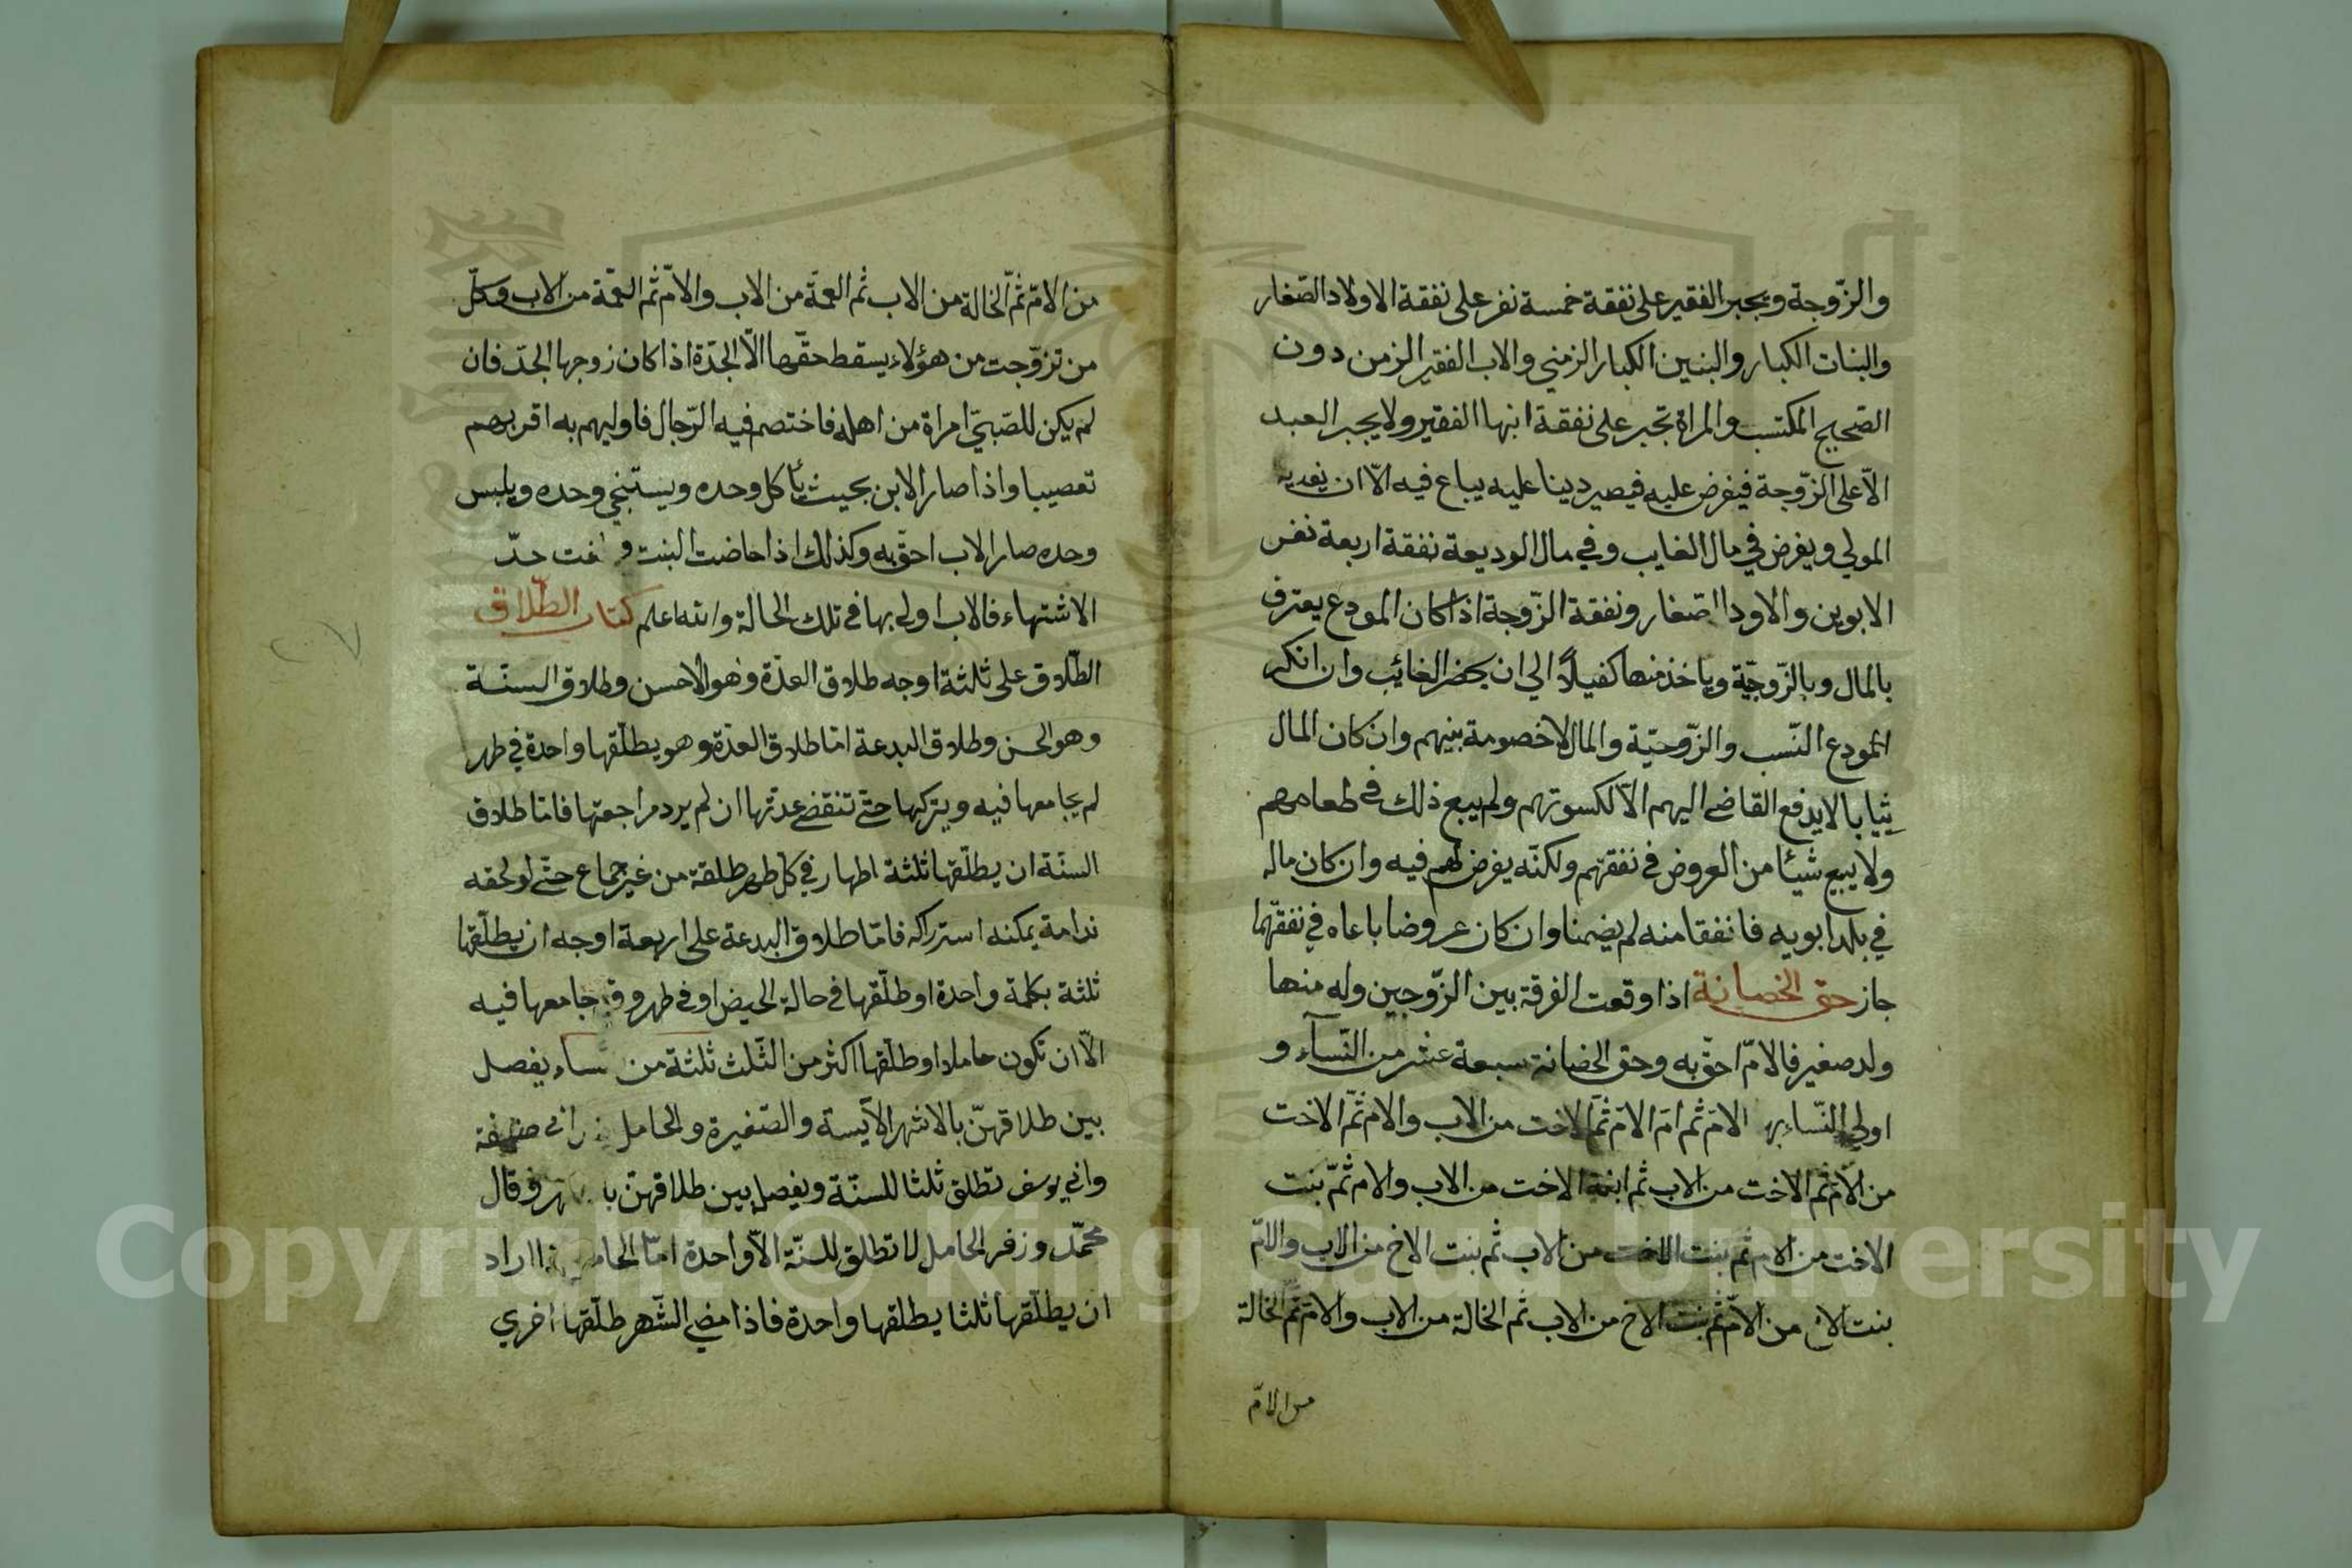 والزّوجة ويجبر الفقير على نفقة خمسة نفر على نفقة الاولاد الصّغار
والبنات الكبار والبنين الكبار الزمني والاب الفقير الزمن دون
الصّحيح المكتسب والمراة تجبر على نفقة ابنها الفقير ولا يجبر العبد
الّا على الزّوجة فيفرض عليه فيصير دينا عليه يباع فيه الّا ان يفديه
المولي ويفرض في مال الغايب وفي مال الوديعة نفقة اربعة نفر
الابوين والاودا اصّغار ونفقة الزّوجة اذا كان المودع يعترف
بالمال وبالزّوجيّة وياخذ منها كفيلاً الي ان يحضر الغائب وان انكر
المودع النّسب والزّوجيّة والمال لا خصومة بينهم وان كان المال
ثيابا لا يدفع القاضي اليهم الّا لكسوتهم ولم يبع ذلك في طعامهم
ولا يبيع شيئا من العروض في نفقتهم ولكنّه يفرض لهم فيه وان كان ماله
في بلد ابويه فانفقا منه لم يضمنا وان كان عروضا باعاه في نفقتهما
جاز حق الخضانة اذا وقعت الفرقة بين الزّوجين وله منها
ولد صغير فالامّ احقّ به وحق الحضانة سبعة عشر من النّسآء و
اولي النّساء بها الامّ ثم امّ الامّ ثمّ الاخت من الاب والام ثمّ الاخت
من الامّ ثم الاخت من الاب ثم ابنة الاخت من الاب والام ثمّ بنت
الاخت من الام ثم بنت الاخت من الاب ثم بنت الاخ من الاب والامّ
بنت الاخ من الامّ ثم بنت الاخ من الاب ثم الخالة من الاب والامّ ثمّ الخالة
من الامّ
من الامّ ثمّ الخالة من الاب ثم العمّة من الاب والامّ ثم العمّة من الاب وكلّ
من تزوّجت من هؤلاء يسقط حقّها الّا الجدّة اذا كان زوجها الجدّ فان
لم يكن للصّبيّ امراة من اهله فاختصم فيه الرّجال فاوليهم به اقربهم
تعصيبا واذا صار الابن بحيث يأكل وحده ويستنجي وحده ويلبس
وحده صار الاب احقّ به وكذلك اذا حاضت البنت و حدّ
الاشتهاء فالاب اولي بها في تلك الحالة والله اعلم كتاب الطّلاق
الطّلاق على ثلثة اوجه طلاق العدّة وهو الاحسن وطلاق السنّة
وهو الحسن وطلاق البدعة امّا طلاق العدّة وهو يطلّقها واحدة في طهر
لم يجامعها فيه ويتركها حتّي تنقضي عدتها ان لم يرد مراجعتها فامّا طلاق
السنّة ان يطلّقها ثلثة اطهار في كل طهر طلقة من غير جماع حتّي لو لحقه
ندامة يمكنه استراكه فامّا طلاق البدعة على اربعة اوجه ان يطلّقها
ثلثة بكلمة واحدة او طلّقها في حالة الحيض او في طهر وقد جامعها فيه
الّا ان تكون حاملا او طلّقها اكثر من الثّلث ثلثة من نساء يفصل
بين طلاقهنّ بالاشهر الآيسة والصّغيرة والحامل عند ابي حنيفة
وابي يوسف تطلق ثلثا للسنّة ويفصل بين طلاقهنّ با وقال
محمّد وزفر الحامل لا تطلق للسنّة الّا واحدة امّا الحامل اراد
ان يطلّقها ثلثا يطلقها واحدة فاذا مضي الشّهر طلّقها اخري
Copyright © King Saud University